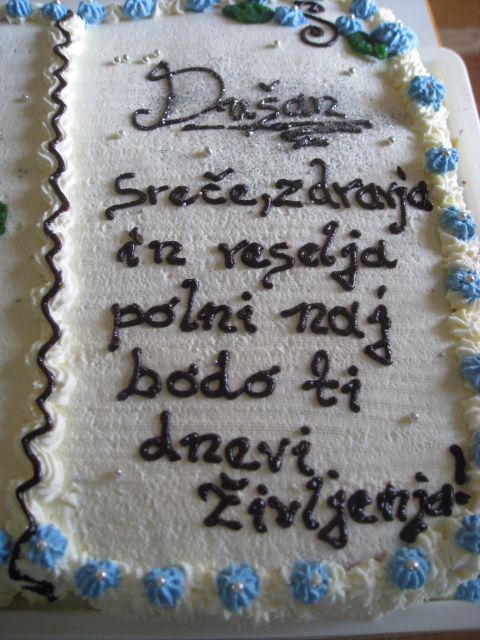 Dušan
Sreče, zdravja
in veselja
polni naj
bodo ti
dnevi
življenja!